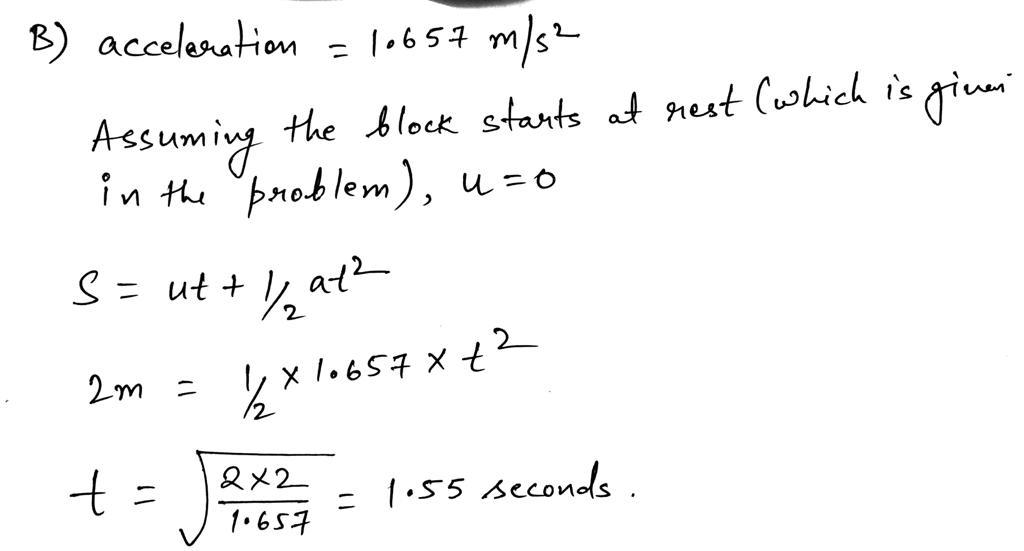 B) acceleration = 1.657 m/s²
Assuming the block starts at rest (which is given
in the problem), u = 0
S = ut + 1/2 at²
2m = 1/2 × 1.657 × t²
t = √(2×2/1.657) = 1.55 seconds.